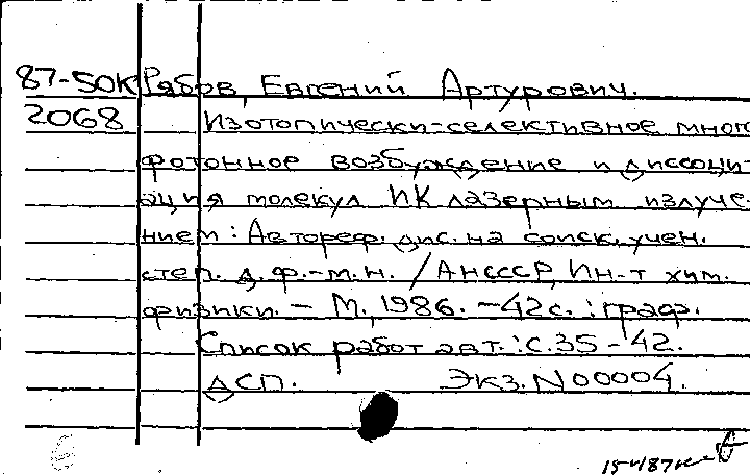 87-50К Рябов, Евгений Артурович.
2068 Изотопически-селективное много
фотонное возбуждение и диссоци-
ация молекул ИК лазерным излуче-
нием: Автореф. дис. на соиск. учен.
степ. д.ф.-м.н. / АН СССР, Ин-т хим.
физики. – М., 1986. – 42 с. : граф.
Список работ авт.: с. 35-42.
ДСП. Экз. N 00004.